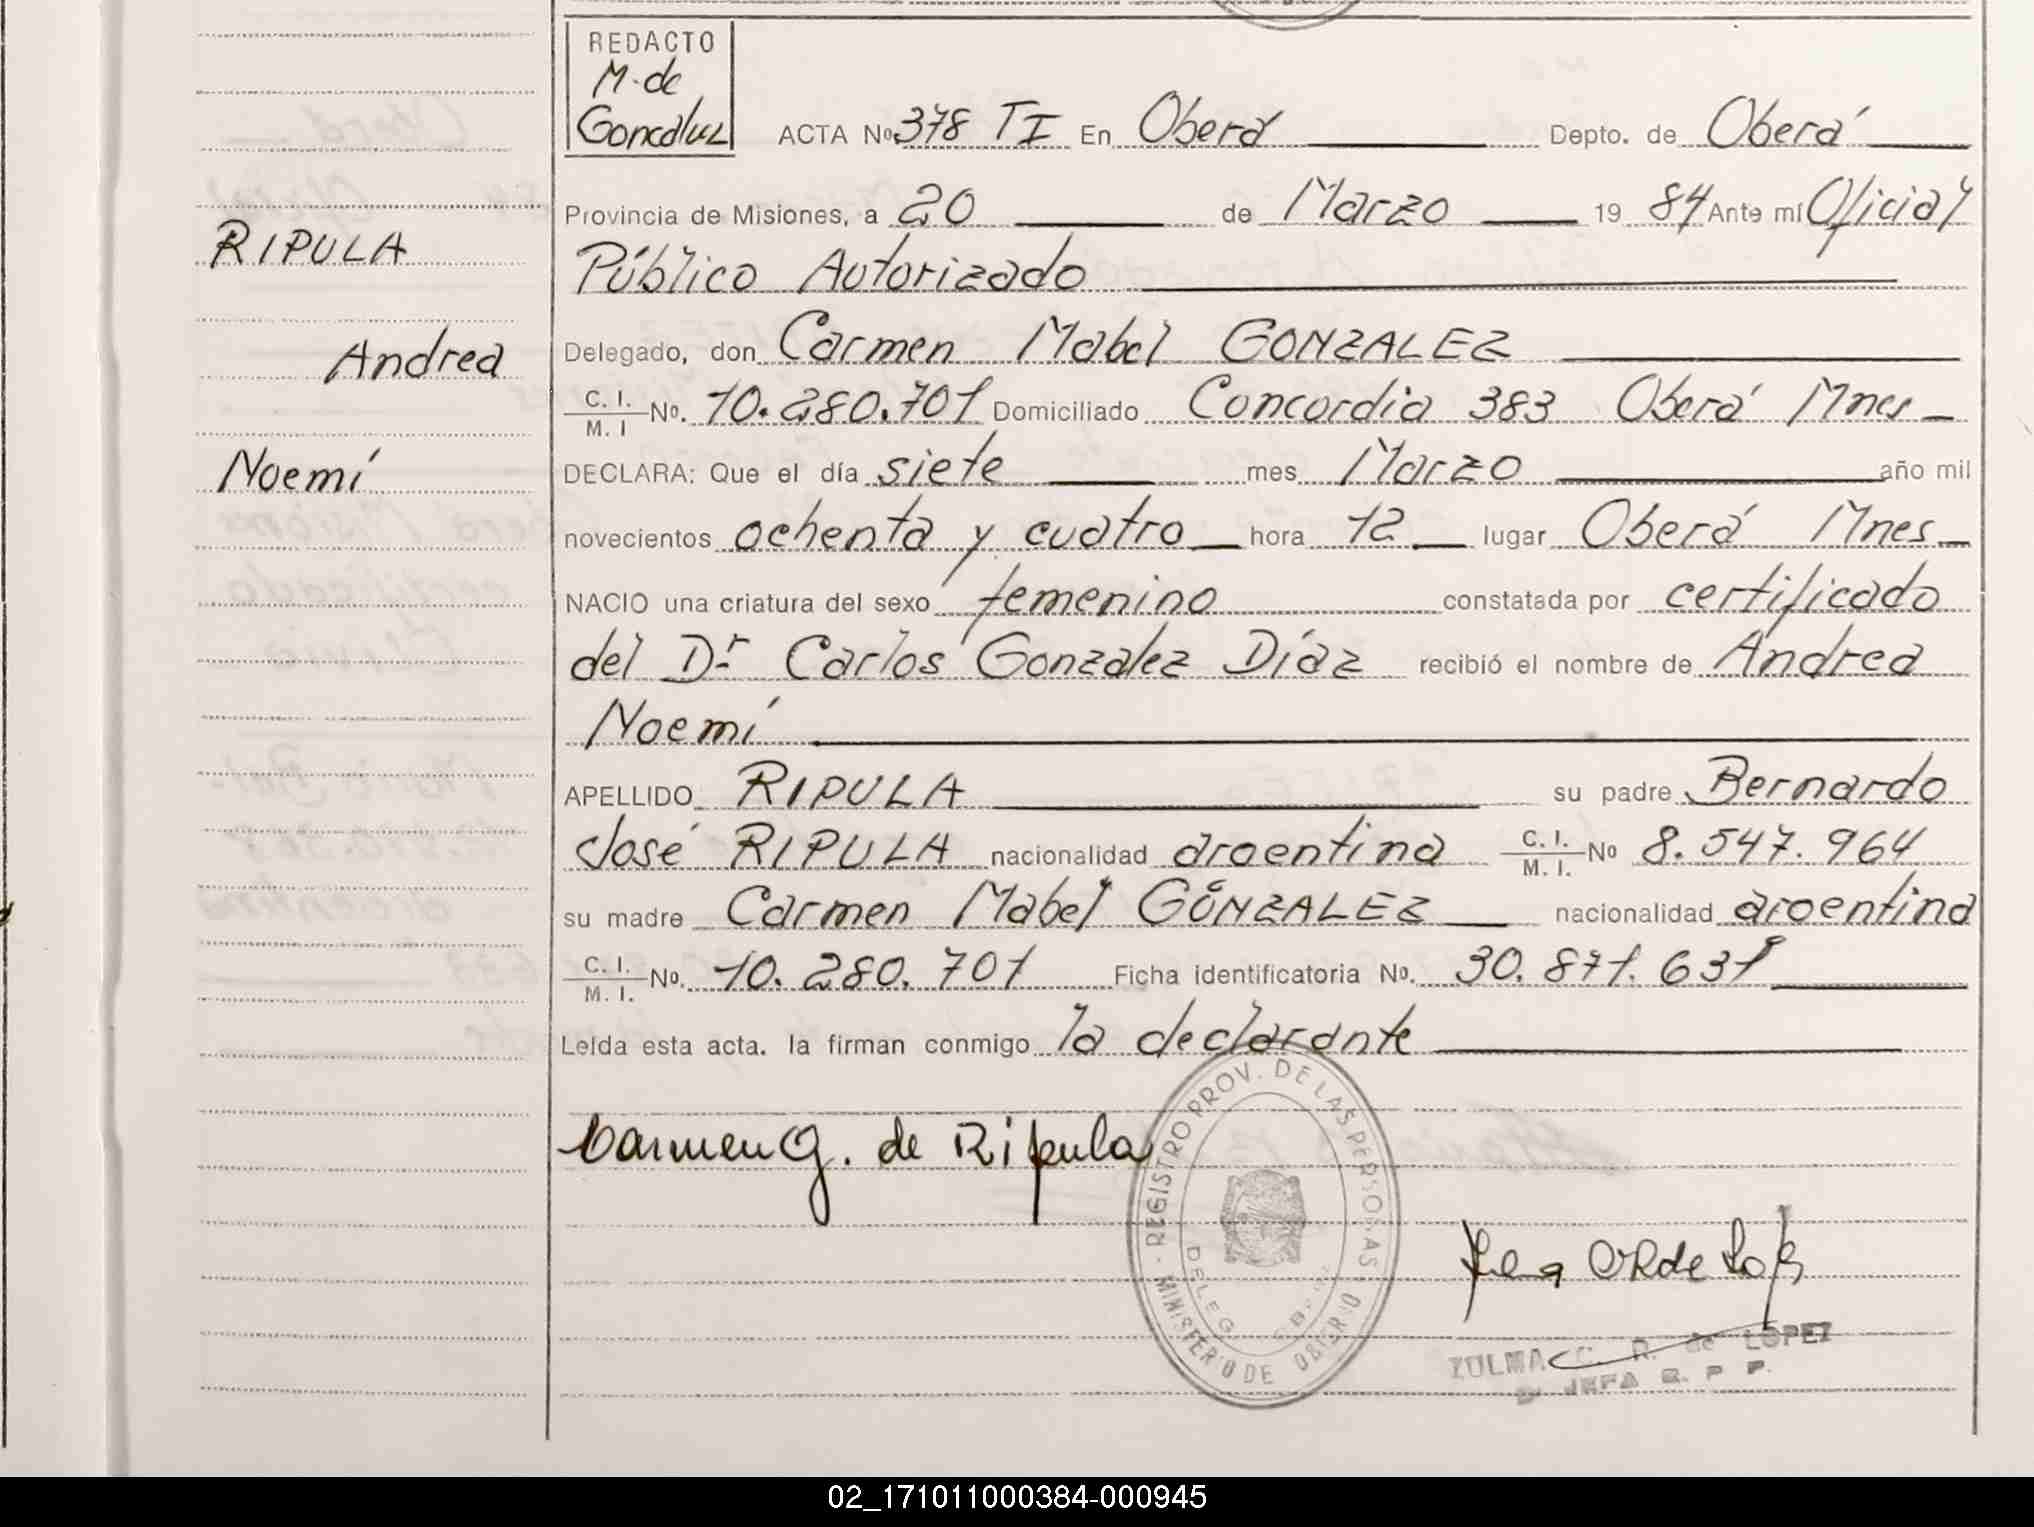 REDACTO
M. de
ACTA Nº 378 TI En Oberá Depto. de Oberá
Provincia de Misiones, a 20 de Marzo 19 84 Ante mí Oficial
RIPULA
Público Autorizado
Andrea
Delegado, don Carmen Mabel GONZALEZ
C. I. M. I Nº. 10.280.701 Domiciliado Concordia 383 Oberá Mnes
Noemí
DECLARA: Que el día siete mes Marzo año mil
novecientos ochenta y cuatro hora 12 lugar Oberá Mnes
NACIO una criatura del sexo femenino constatada por certificado
del Dr. Carlos Gonzalez Díaz recibió el nombre de Andrea
Noemí
APELLIDO RIPULA su padre Bernardo
José RIPULA nacionalidad argentina C. I. M. I. Nº 8.547.964
su madre Carmen Mabel GONZALEZ nacionalidad argentina
C. I. M. I. Nº. 10.280.701 Ficha identificatoria Nº. 30.871.631
Leída esta acta. la firman conmigo la declarante
Carmen G. de Ripula
REGISTRO PROV. DE LAS PERSONAS
MINISTERIO DE GOBIERNO
DELEG.
ZULMA C. R. de LOPEZ
JEFA R. P. P.
02_171011000384-000945